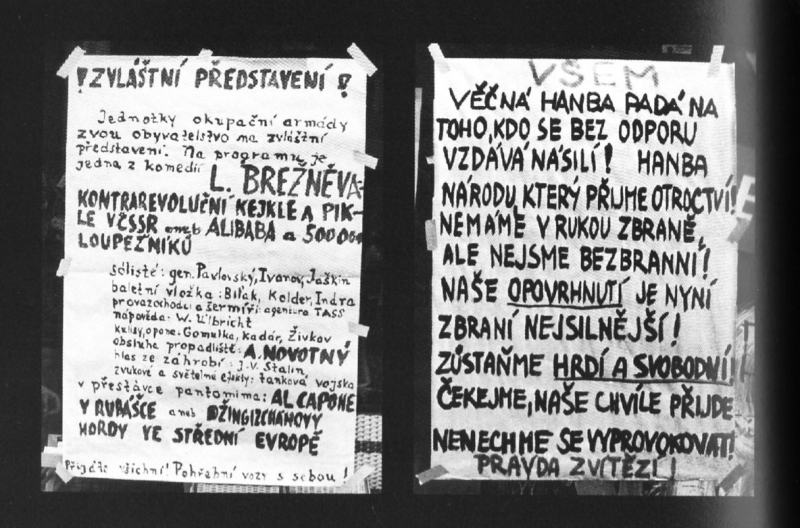 !ZVLÁŠTNÍ PŘEDSTAVENÍ!
Jednotky okupační armády
zvou obyvatelstvo na zvláštní
představení. Na programu je
jedna z komedií
L. BREŽNĚVA-
KONTRAREVOLUČNÍ KEJKLE A PIK-
LE V ČSSR aneb ALIBABA a 500000
LOUPEŽNÍKŮ
sólisté: gen. Pavlovský, Ivanov, Jaškin
baletní vložka: Bilak, Kolder, Indra
provazochodci a šermíři: agentura TASS
nápověda: W. Ulbricht
kulisy, opona: Gomulka, Kadár, Živkov
obsluha propadliště: A. NOVOTNÝ
hlas ze záhrobí: J.V. Stalin,
zvukové a světelné efekty: tanková vojska
v přestávce pantomima: AL CAPONE
V RUBÁŠCE aneb DŽINGIZCHÁNOVY
HORDY VE STŘEDNÍ EVROPĚ
Přijďte všichni! Pohřební vozy s sebou!
VŠEM
VĚČNÁ HANBA PADÁ NA
TOHO, KDO SE BEZ ODPORU
VZDÁVÁ NÁSILÍ! HANBA
NÁRODU, KTERÝ PŘIJME OTROCTVÍ!
NEMÁME V RUKOU ZBRANĚ,
ALE NEJSME BEZBRANNÍ!
NAŠE OPOVRHNUTÍ JE NYNÍ
ZBRANÍ NEJSILNĚJŠÍ!
ZŮSTAŇME HRDÍ A SVOBODNÍ!
ČEKEJME, NAŠE CHVÍLE PŘIJDE
NENECHME SE VYPROVOKOVAT!
PRAVDA ZVÍTĚZÍ!